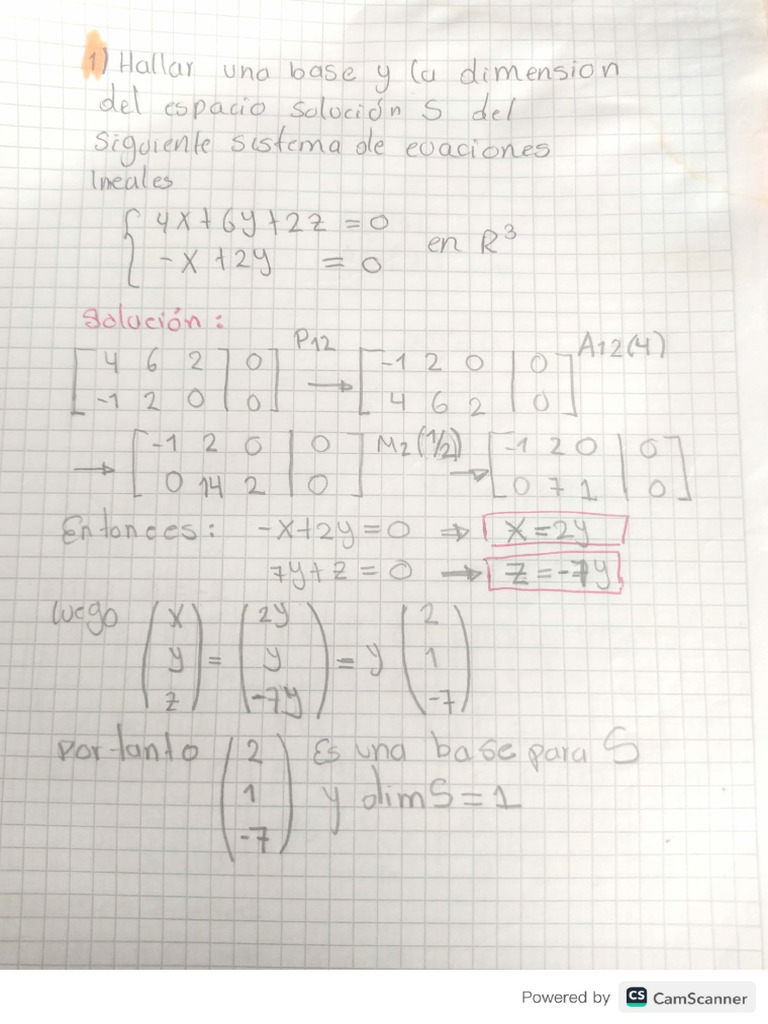 1) Hallar una base y la dimension
del espacio solución S del
siguiente sistema de ecuaciones
lineales
4x+6y+2z=0
-x+2y =0
en R³
Solución:
4 6 2 | 0
-1 2 0 | 0
P12 →
-1 2 0 | 0
4 6 2 | 0
A12(4)
→
-1 2 0 | 0
0 14 2 | 0
M2(1/2) →
-1 2 0 | 0
0 7 1 | 0
Entonces: -x+2y=0 ⇒ x=2y
7y+z=0 → z=-7y
luego (x y z) = (2y y -7y) = y (2 1 -7)
Por tanto (2 1 -7) Es una base para S
y dimS=1
Powered by CS CamScanner